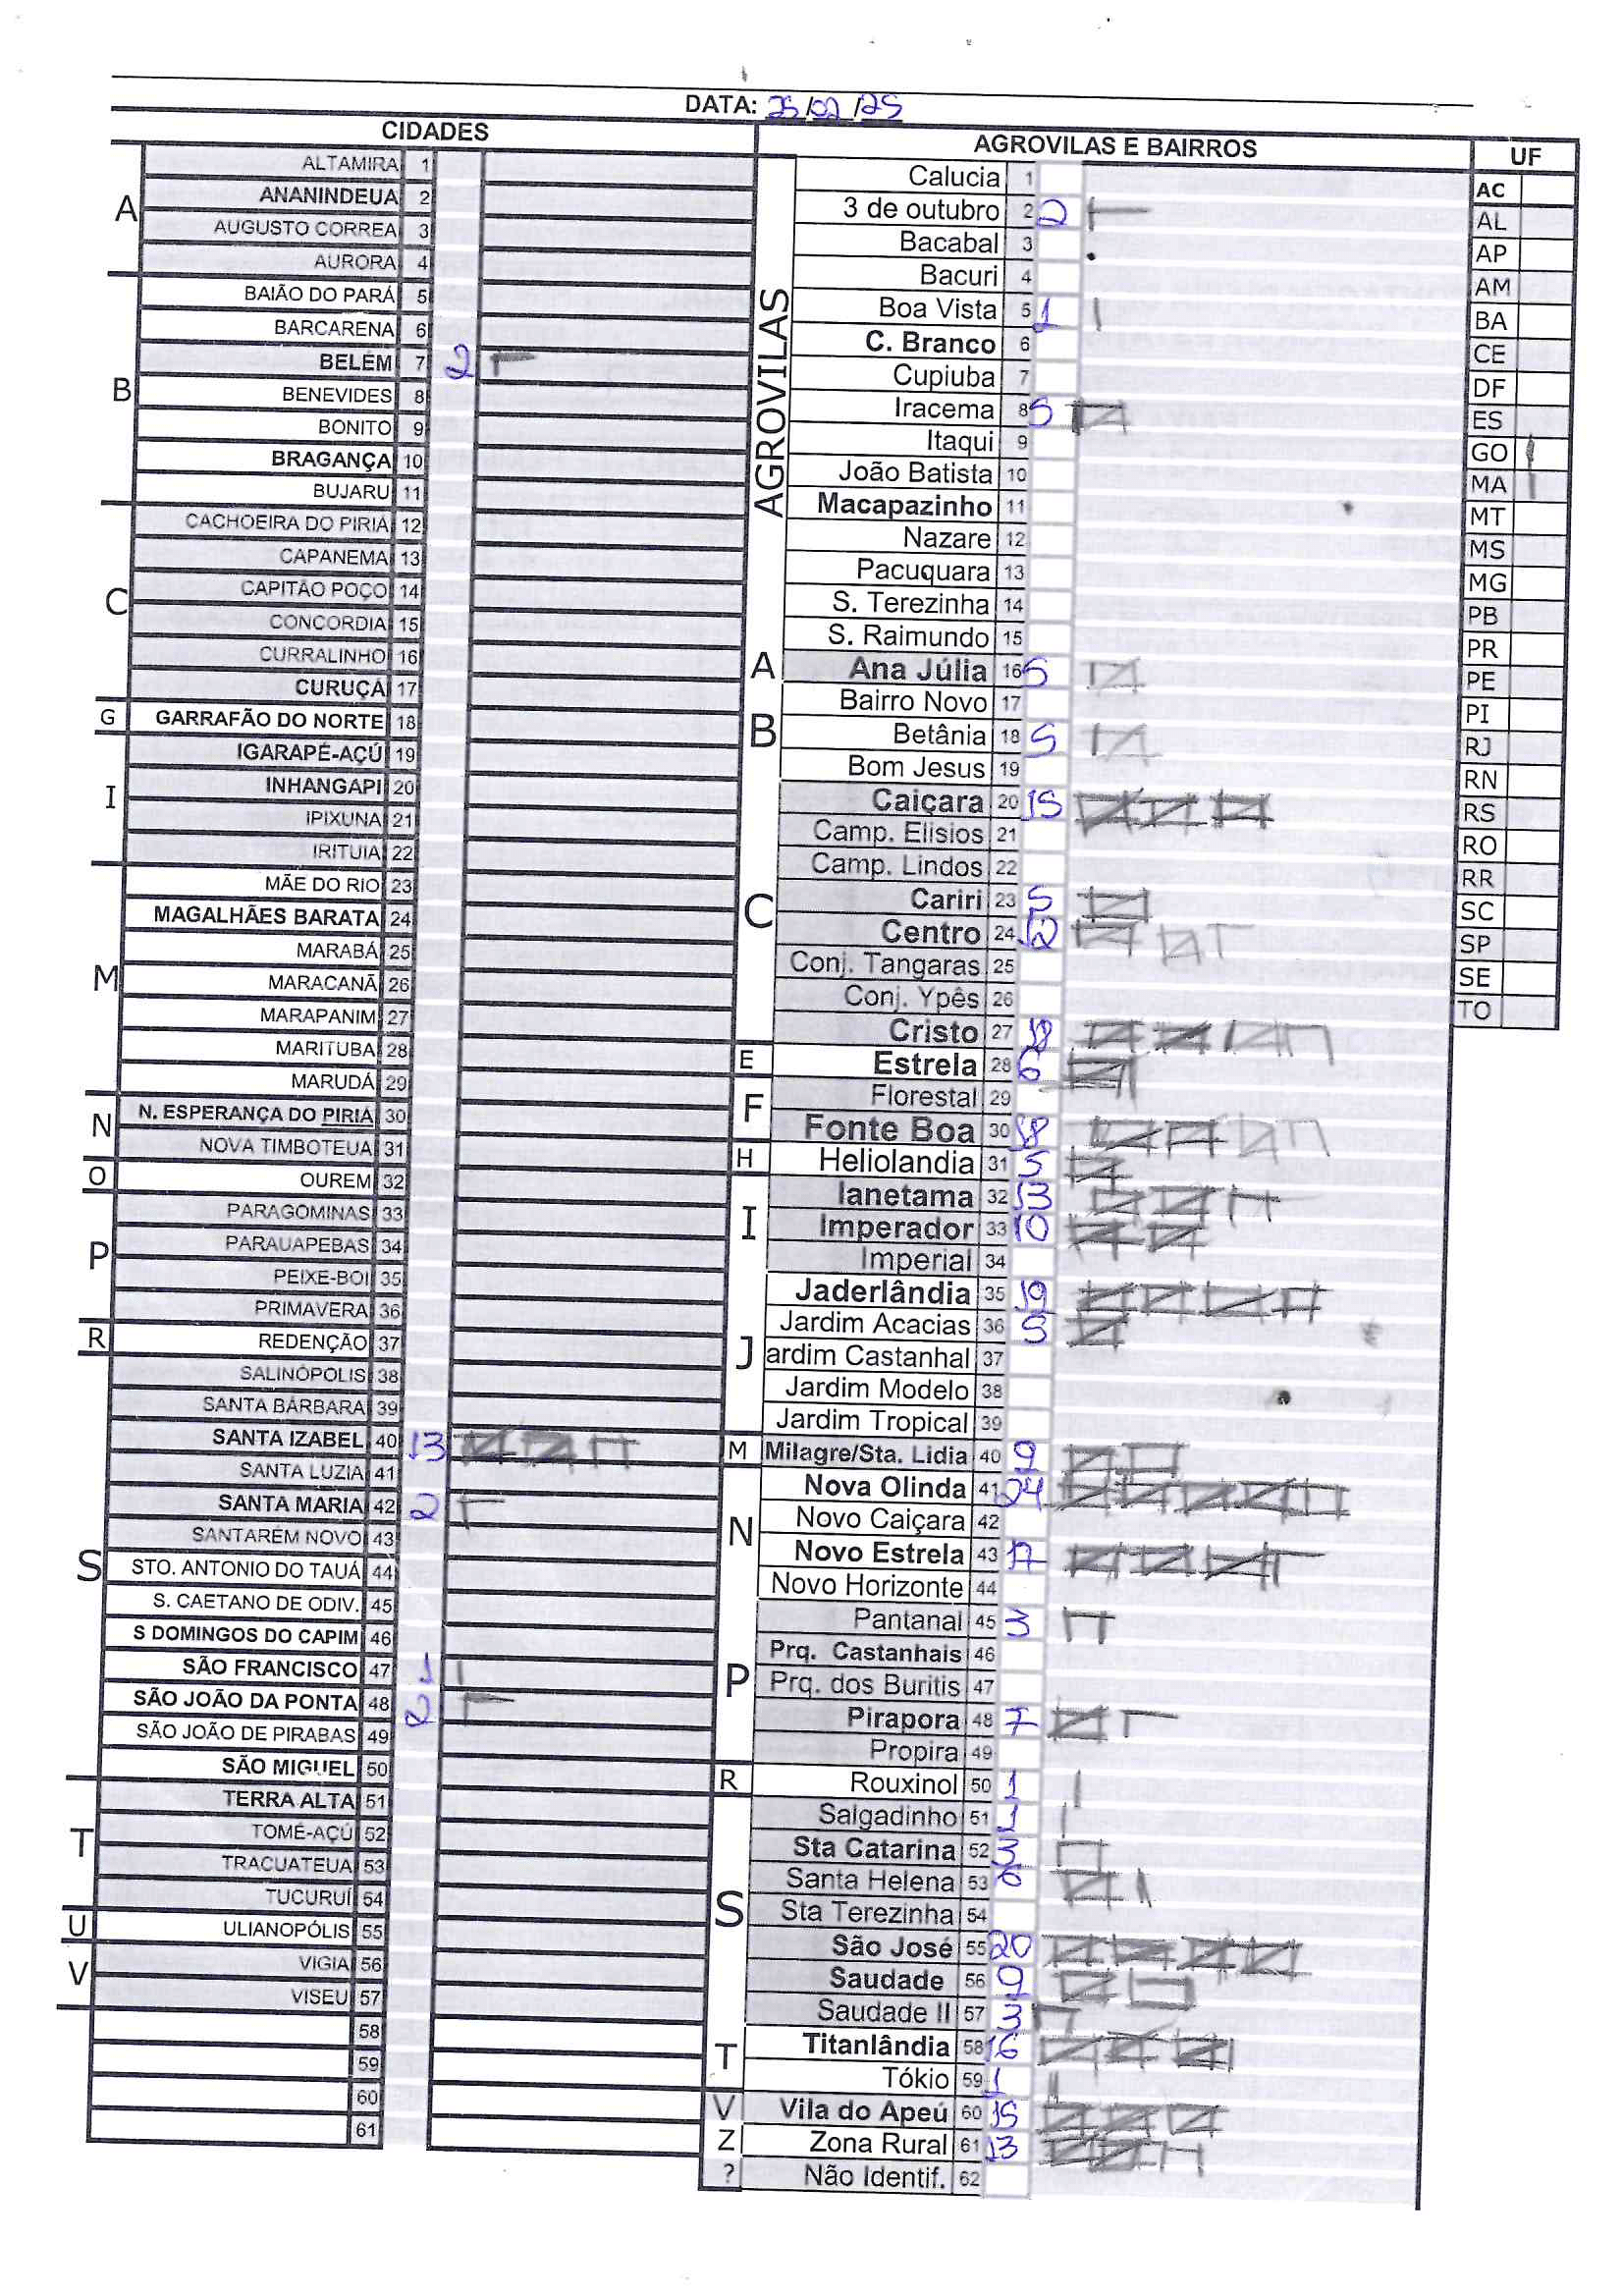 DATA: 25/02/25
CIDADES
A
ALTAMIRA 1
ANANINDEUA 2
AUGUSTO CORREA 3
AURORA 4
B
BAIÃO DO PARÁ 5
BARCARENA 6
BELÉM 7 2
BENEVIDES 8
BONITO 9
BRAGANÇA 10
BUJARU 11
C
CACHOEIRA DO PIRIA 12
CAPANEMA 13
CAPITÃO POÇO 14
CONCORDIA 15
CURRALINHO 16
CURUÇÁ 17
G GARRAFÃO DO NORTE 18
I
IGARAPÉ-AÇÚ 19
INHANGAPI 20
IPIXUNA 21
IRITUIA 22
M
MÃE DO RIO 23
MAGALHÃES BARATA 24
MARABÁ 25
MARACANÃ 26
MARAPANIM 27
MARITUBA 28
MARUDÁ 29
N
N. ESPERANÇA DO PIRIA 30
NOVA TIMBOTEUA 31
O OUREM 32
P
PARAGOMINAS 33
PARAUAPEBAS 34
PEIXE-BOI 35
PRIMAVERA 36
R REDENÇÃO 37
S
SALINÓPOLIS 38
SANTA BÁRBARA 39
SANTA IZABEL 40 13
SANTA LUZIA 41
SANTA MARIA 42 2
SANTARÉM NOVO 43
STO. ANTONIO DO TAUÁ 44
S. CAETANO DE ODIV. 45
S DOMINGOS DO CAPIM 46
SÃO FRANCISCO 47 1
SÃO JOÃO DA PONTA 48 2
SÃO JOÃO DE PIRABAS 49
SÃO MIGUEL 50
T
TERRA ALTA 51
TOMÉ-AÇÚ 52
TRACUATEUA 53
TUCURUÍ 54
U ULIANOPÓLIS 55
V
VIGIA 56
VISEU 57
58
59
60
61
AGROVILAS E BAIRROS
AGROVILAS
Calucia 1
3 de outubro 2 2
Bacabal 3
Bacuri 4
Boa Vista 5 1
C. Branco 6
Cupiuba 7
Iracema 8 5
Itaqui 9
João Batista 10
Macapazinho 11
Nazare 12
Pacuquara 13
S. Terezinha 14
S. Raimundo 15
A Ana Júlia 16 5
B
Bairro Novo 17
Betânia 18 5
Bom Jesus 19
C
Caiçara 20 15
Camp. Elisios 21
Camp. Lindos 22
Cariri 23 5
Centro 24 12
Conj. Tangaras 25
Conj. Ypês 26
Cristo 27 18
E Estrela 28 6
F
Florestal 29
Fonte Boa 30 18
H Heliolandia 31 5
I
Ianetama 32 13
Imperador 33 10
Imperial 34
J
Jaderlândia 35 19
Jardim Acacias 36 5
ardim Castanhal 37
Jardim Modelo 38
Jardim Tropical 39
M Milagre/Sta. Lidia 40 9
N
Nova Olinda 41 24
Novo Caiçara 42
Novo Estrela 43 17
Novo Horizonte 44
P
Pantanal 45 3
Prq. Castanhais 46
Prq. dos Buritis 47
Pirapora 48 7
Propira 49
R Rouxinol 50 1
S
Salgadinho 51 1
Sta Catarina 52 3
Santa Helena 53 6
Sta Terezinha 54
São José 55 20
Saudade 56 9
Saudade II 57 3
T
Titanlândia 58 16
Tókio 59 1
V Vila do Apeú 60 15
Z Zona Rural 61 13
? Não Identif. 62
UF
AC
AL
AP
AM
BA
CE
DF
ES
GO
MA
MT
MS
MG
PB
PR
PE
PI
RJ
RN
RS
RO
RR
SC
SP
SE
TO